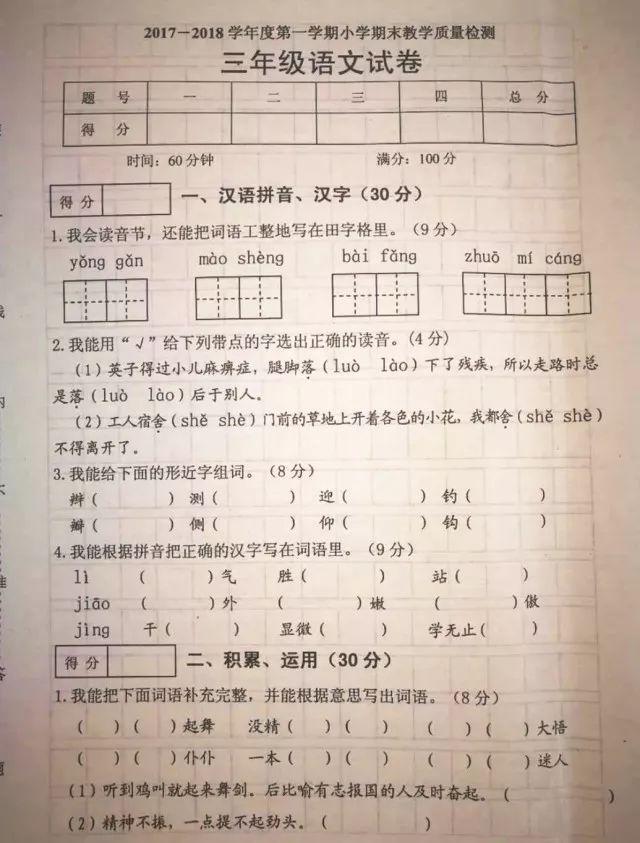 2017－2018 学年度第一学期小学期末教学质量检测
三年级语文试卷
题 号 一 二 三 四 总 分
得 分
时间：60 分钟 满分：100 分
得 分 一、汉语拼音、汉字（30 分）
1.我会读音节，还能把词语工整地写在田字格里。（9 分）
yǒng gǎn mào shèng bài fǎng zhuō mí cáng
2.我能用“√”给下列带点的字选出正确的读音。(4 分)
（1）英子得过小儿麻痹症，腿脚落（luò lào）下了残疾，所以走路时总
是落（luò lào）后于别人。
（2）工人宿舍（shě shè）门前的草地上开着各色的小花，我都舍（shě shè）
不得离开了。
3.我能给下面的形近字组词。（8 分）
辩（ ） 测（ ） 迎（ ） 钓（ ）
瓣（ ） 侧（ ） 仰（ ） 钩（ ）
4.我能根据拼音把正确的汉字写在词语里。（9 分）
lì （ ）气 胜（ ） 站（ ）
jiāo （ ）外 （ ）嫩 （ ）傲
jìng 干（ ） 显微（ ） 学无止（ ）
得 分 二、积累、运用（30 分）
1.我能把下面词语补充完整，并能根据意思写出词语。（8 分）
（ ）（ ）起舞 没精（ ）（ ） （ ）（ ）大悟
（ ）（ ）仆仆 一本（ ）（ ） （ ）（ ）迷人
（1）听到鸡叫就起来舞剑。后比喻有志报国的人及时奋起。（ ）
（2）精神不振，一点提不起劲头。（ ）